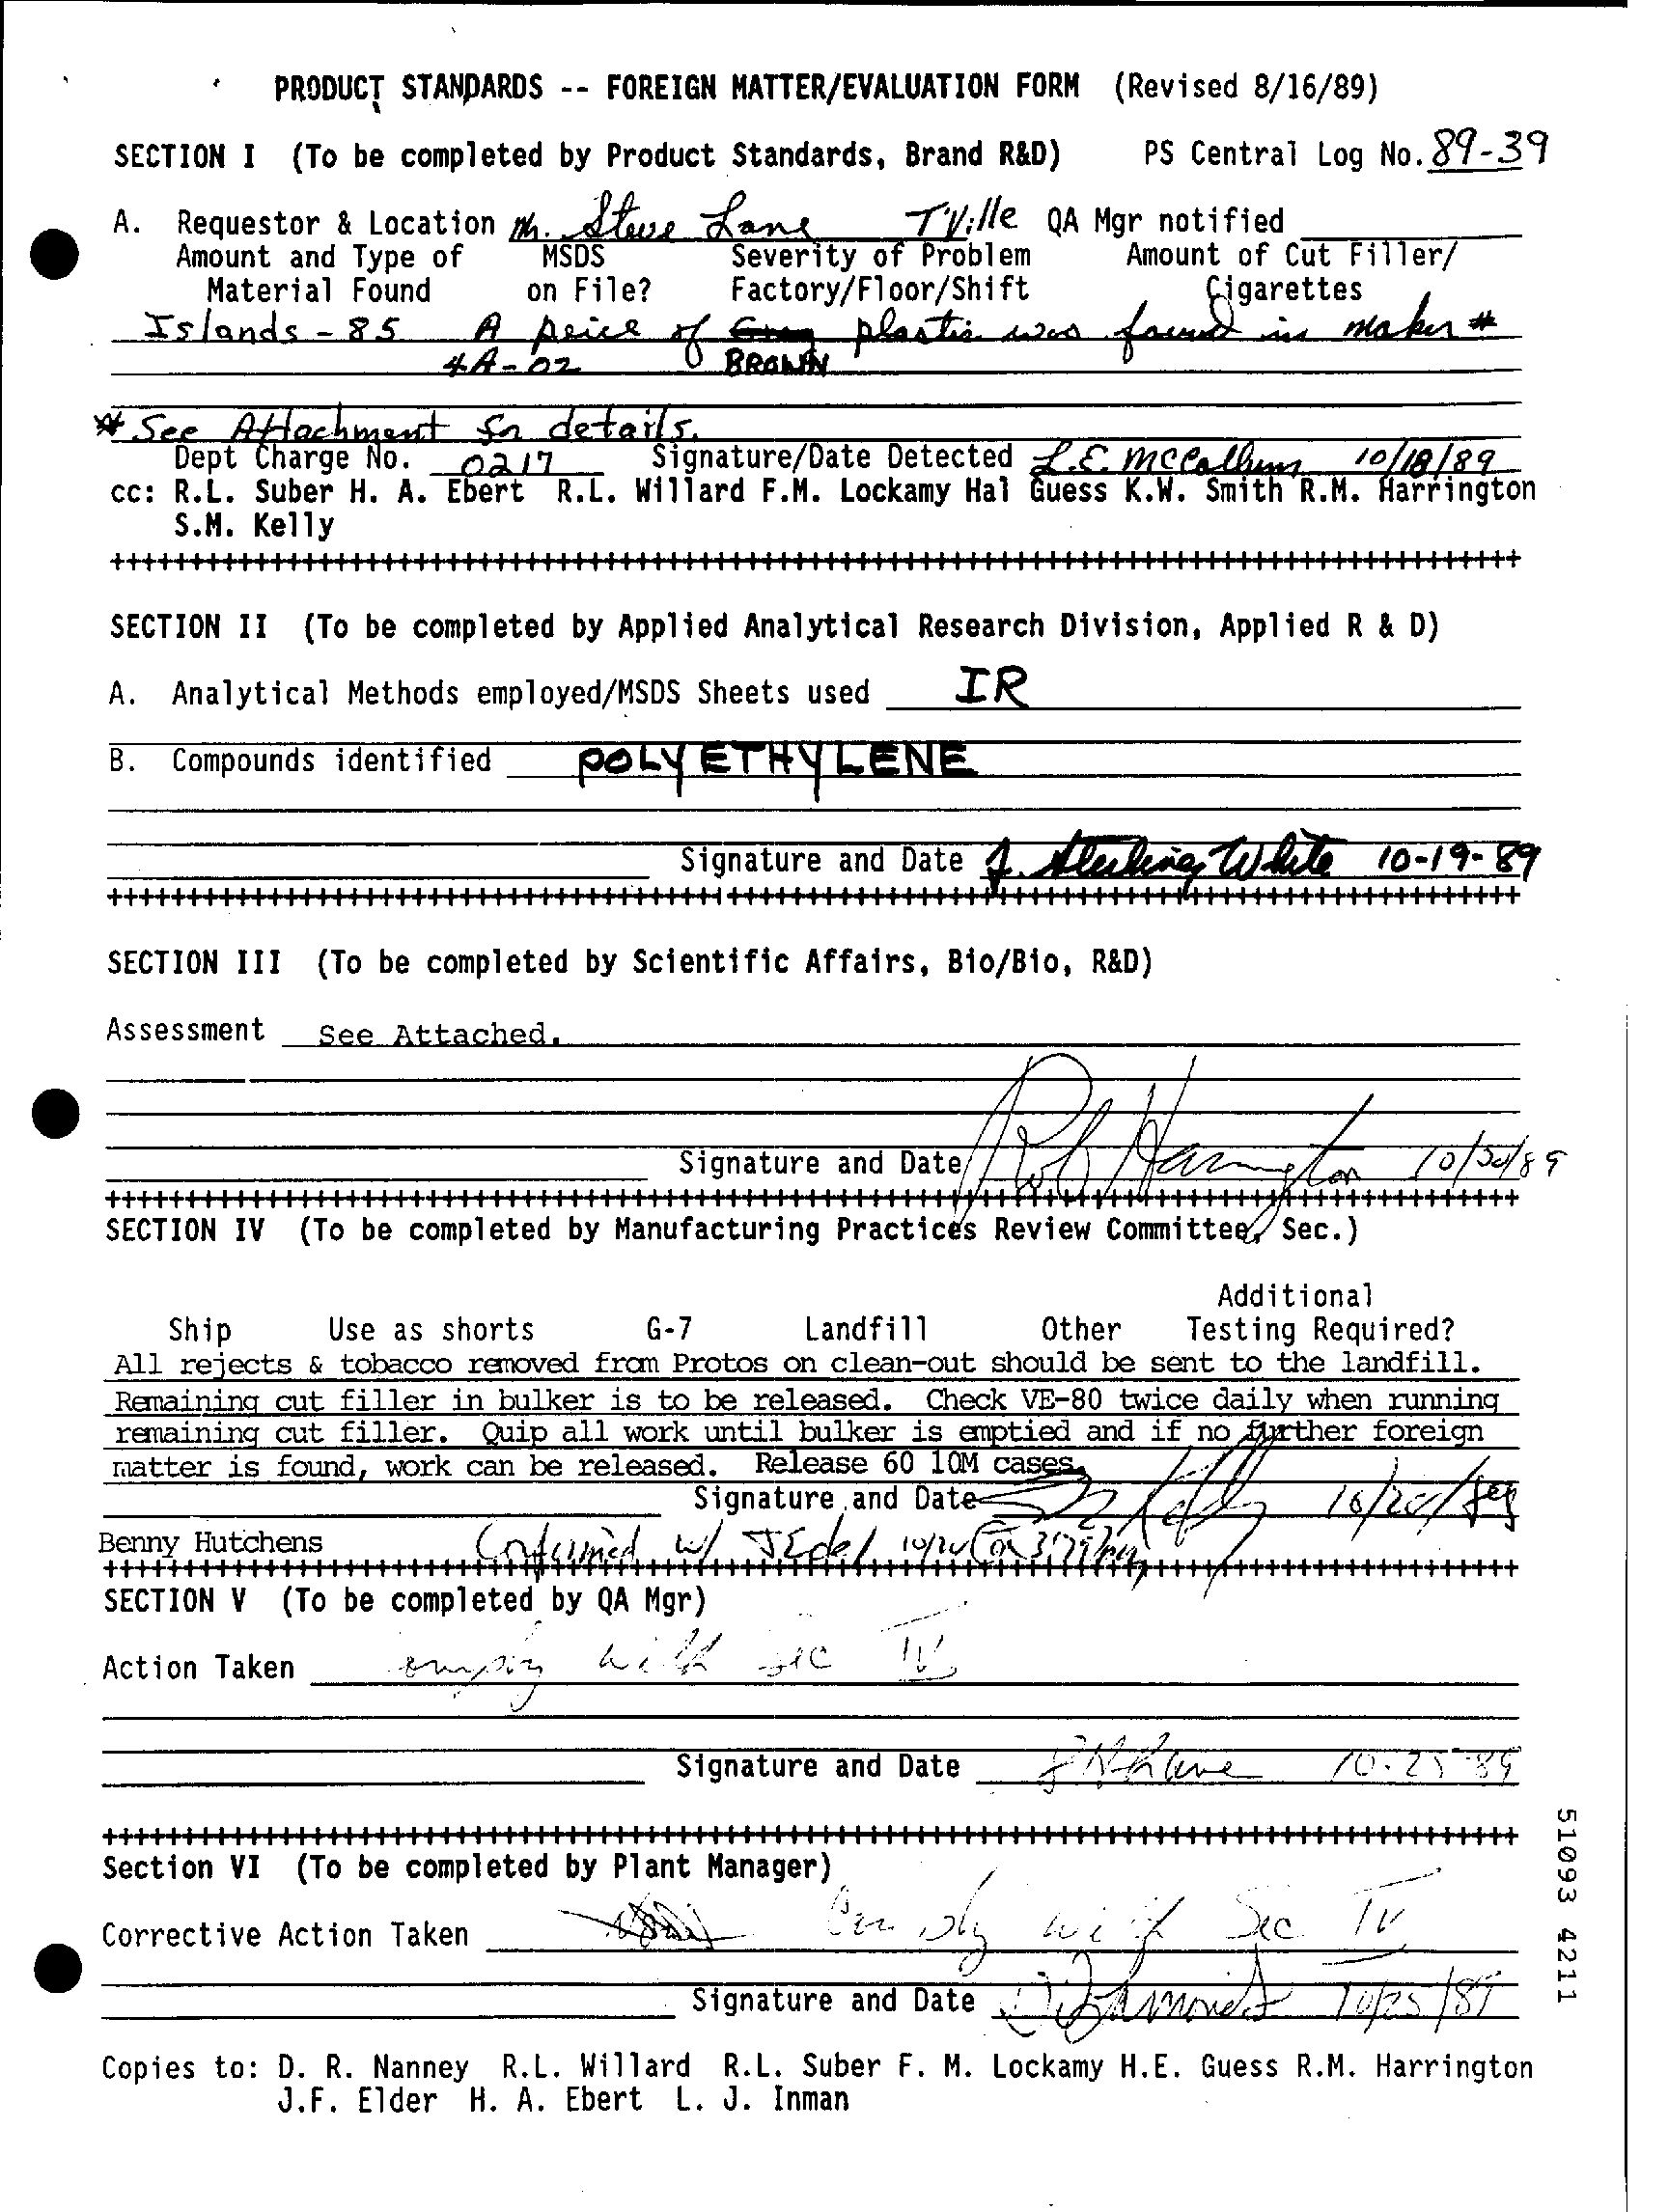 PRODUCT STANDARDS -- FOREIGN MATTER/EVALUATION FORM (Revised 8/16/89)
SECTION I (To be completed by Product Standards, Brand R&D) PS Central Log No. 89-39
A. Requestor & Location Mr. Steve Lane TVille QA Mgr notified
Amount and Type of MSDS Severity of Problem Amount of Cut Filler/
Material Found on File? Factory/Floor/Shift Cigarettes
Islands - 85 A peice of plastic was found in maker #
4A-02 BROWN
* See Attachment for details.
Dept Charge No. 0217 Signature/Date Detected L.E. McCallum 10/18/89
cc: R.L. Suber H. A. Ebert R.L. Willard F.M. Lockamy Hal Guess K.W. Smith R.M. Harrington
S.M. Kelly
++++++++++++++++++++++++++++++++++++++++++++++++++++++++++++++++++++++++++++++++++++++++
SECTION II (To be completed by Applied Analytical Research Division, Applied R & D)
A. Analytical Methods employed/MSDS Sheets used IR
B. Compounds identified POLYETHYLENE
Signature and Date J. Sterling White 10-19-89
++++++++++++++++++++++++++++++++++++++++++++++++++++++++++++++++++++++++++++++++++++++++
SECTION III (To be completed by Scientific Affairs, Bio/Bio, R&D)
Assessment See Attached.
Signature and Date Rob Harrington
++++++++++++++++++++++++++++++++++++++++++++++++++++++++++++++++++++++++++++++++++++++++
SECTION IV (To be completed by Manufacturing Practices Review Committee, Sec.)
Additional
Ship Use as shorts G-7 Landfill Other Testing Required?
All rejects & tobacco removed from Protos on clean-out should be sent to the landfill.
Remaining cut filler in bulker is to be released. Check VE-80 twice daily when running
remaining cut filler. Quip all work until bulker is emptied and if no further foreign
matter is found, work can be released. Release 60 10M cases.
Signature and Date Kelly 10/20/89
Benny Hutchens Confirmed w/
++++++++++++++++++++++++++++++++++++++++++++++++++++++++++++++++++++++++++++++++++++++++
SECTION V (To be completed by QA Mgr)
Action Taken with sec IV
Signature and Date 10-25-89
++++++++++++++++++++++++++++++++++++++++++++++++++++++++++++++++++++++++++++++++++++++++
Section VI (To be completed by Plant Manager)
Corrective Action Taken Comply with Sec IV
Signature and Date 10/25/89
Copies to: D. R. Nanney R.L. Willard R.L. Suber F. M. Lockamy H.E. Guess R.M. Harrington
J.F. Elder H. A. Ebert L. J. Inman
51093 4211